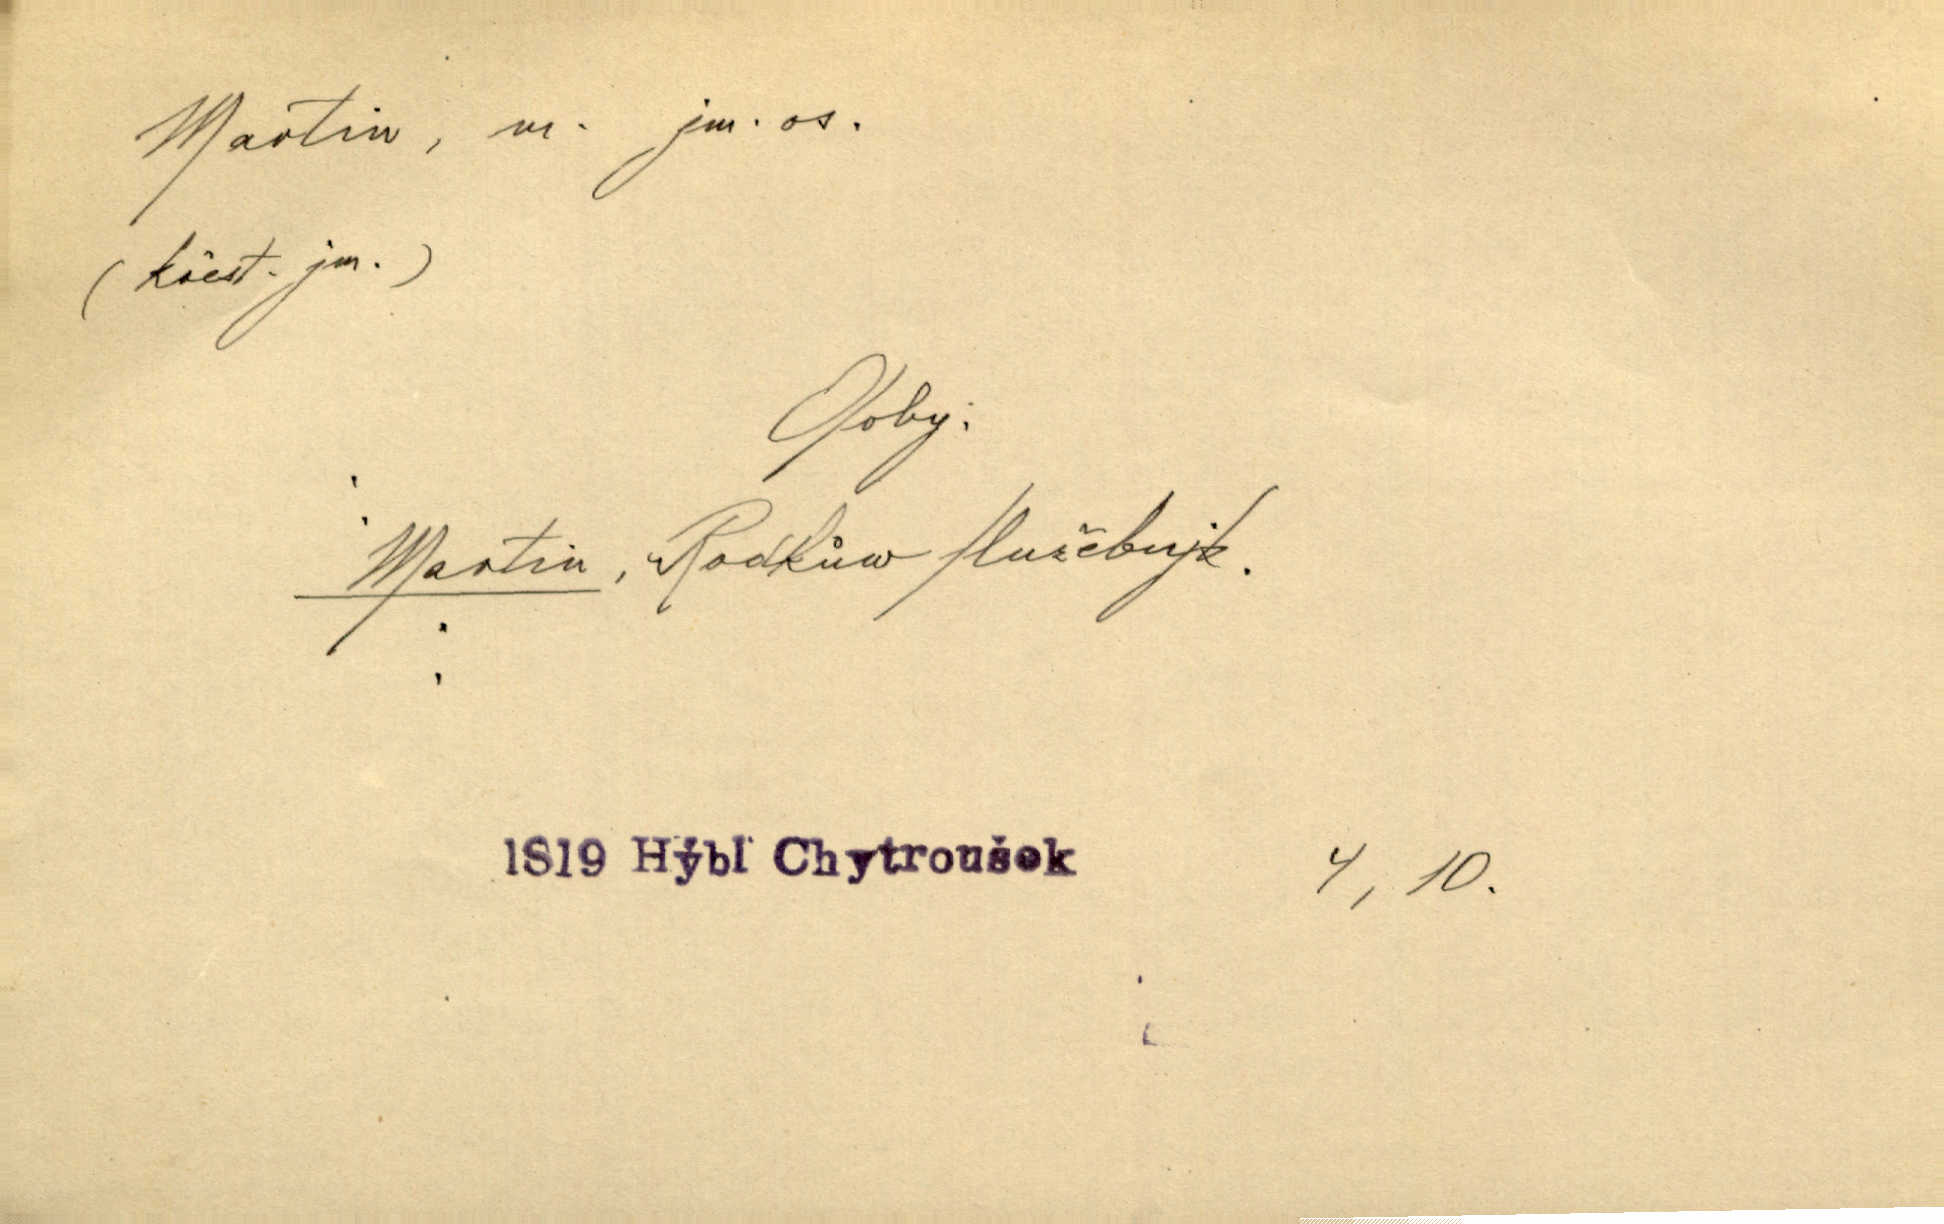 Martin, m. jm. os.
(křest. jm.)
Oſoby:
Martin, Radkůw ſlužebnjk.
1819 Hýbl Chytroušek
4, 10.